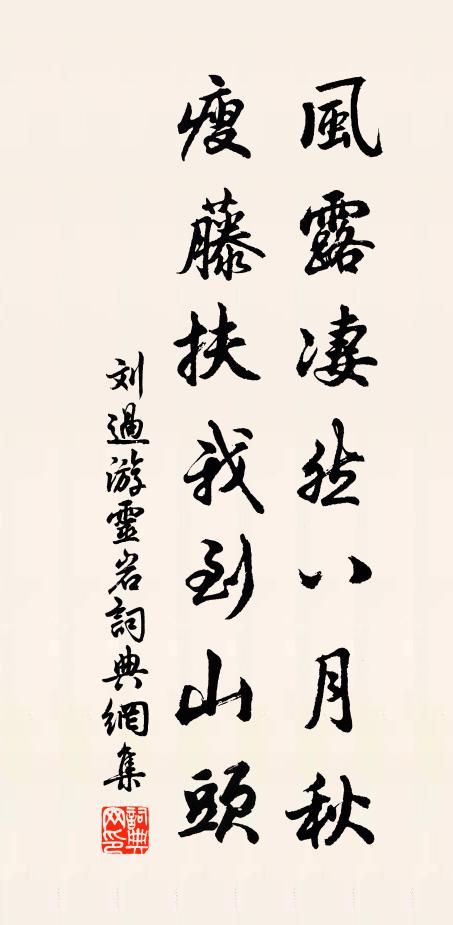 風露凄然八月秋
瘦藤扶我到山頭
刘過游靈岩詞典網集
詞典網印